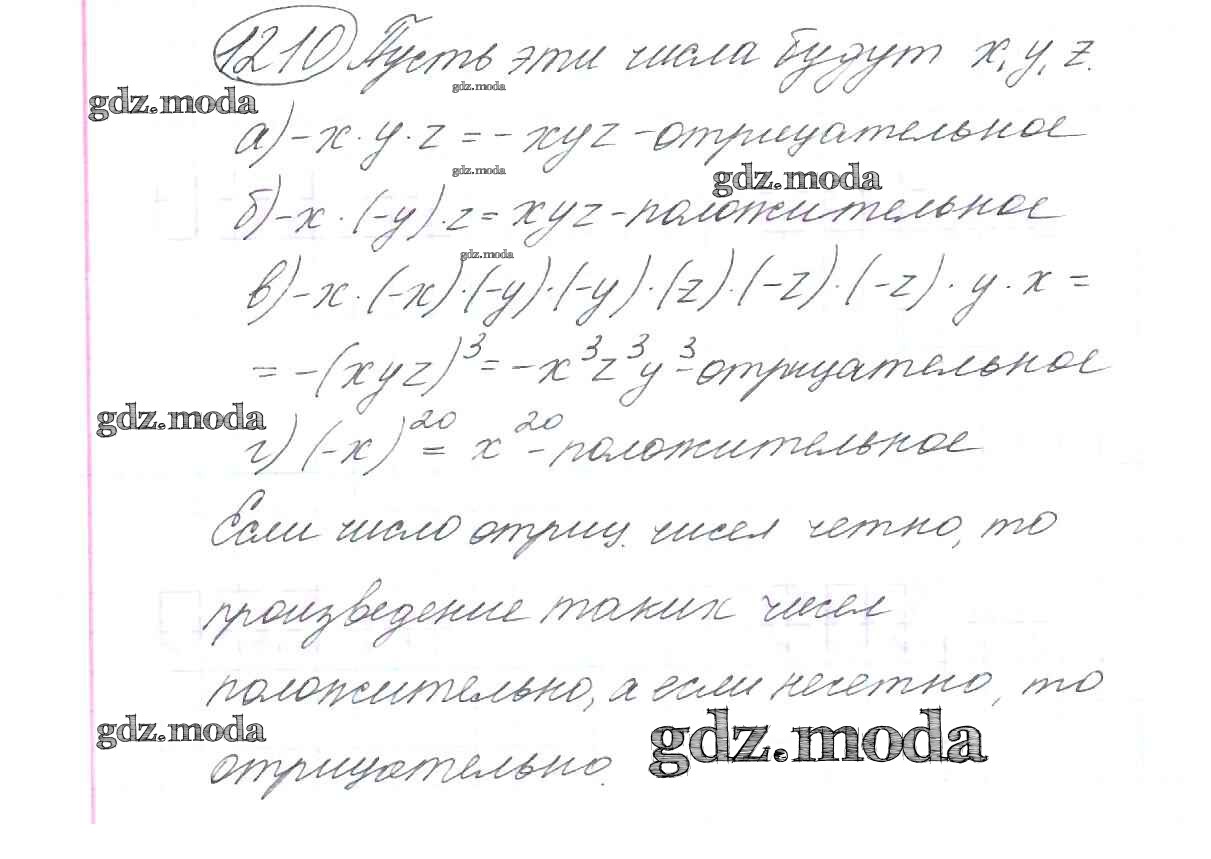 1210 Пусть эти числа будут x, y, z.
gdz.moda
gdz.moda
а) -x · y · z = - xyz - отрицательное
gdz.moda
gdz.moda
б) -x · (-y) · z = xyz - положительное
gdz.moda
в) -x · (-x) · (-y) · (-y) · (z) · (-z) · (-z) · y · x =
= -(xyz)³ = -x³z³y³ - отрицательное
gdz.moda
г) (-x)²⁰ = x²⁰ - положительное
Если число отриц. чисел четно, то
произведение таких чисел
положительно, а если несетно, то
gdz.moda
gdz.moda
отрицательно.